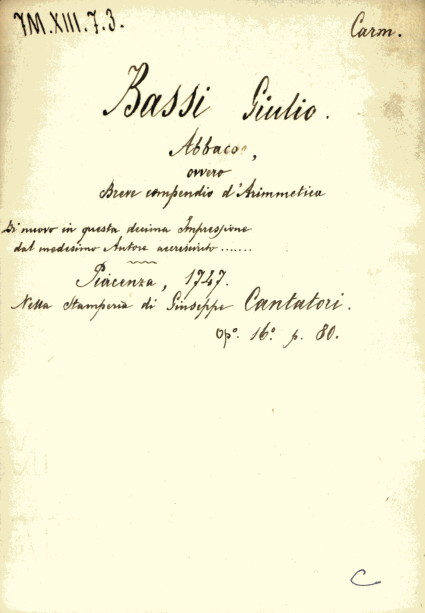 7M.XIII.7.3.
Carm.
Bassi Giulio.
Abbaco,
ovvero
Breve compendio d'Arimmetica
Di nuovo in questa decima Impressione
dal medesimo Autore accresciuto .......
Piacenza, 1747.
Nella Stamperia di Giuseppe Cantatori.
Op°. 16°. p. 80.
C